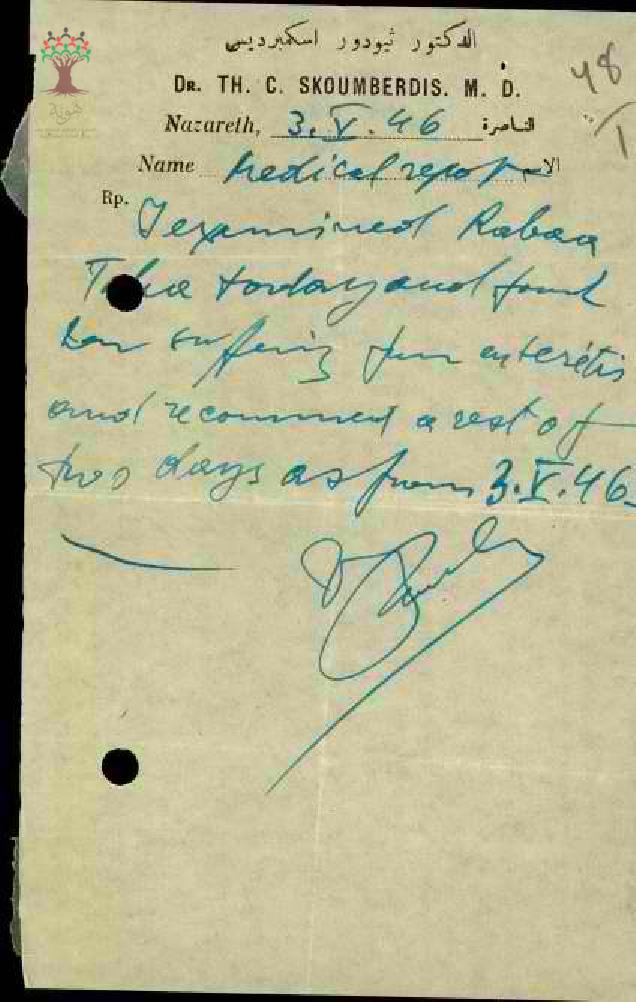 هوية
الدكتور ثيودور اسكمبرديس
DR. TH. C. SKOUMBERDIS. M. D.
48
/1
Nazareth, 3.V.46 الناصرة
Name Medical report الاسم
Rp.
I examined Rabaa
Taha today and found
her suffering from enteritis
and recommend a rest of
two days as from 3.V.46.